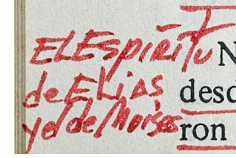 El Espíritu
de Elias
y el de Moises
N
desd
ron